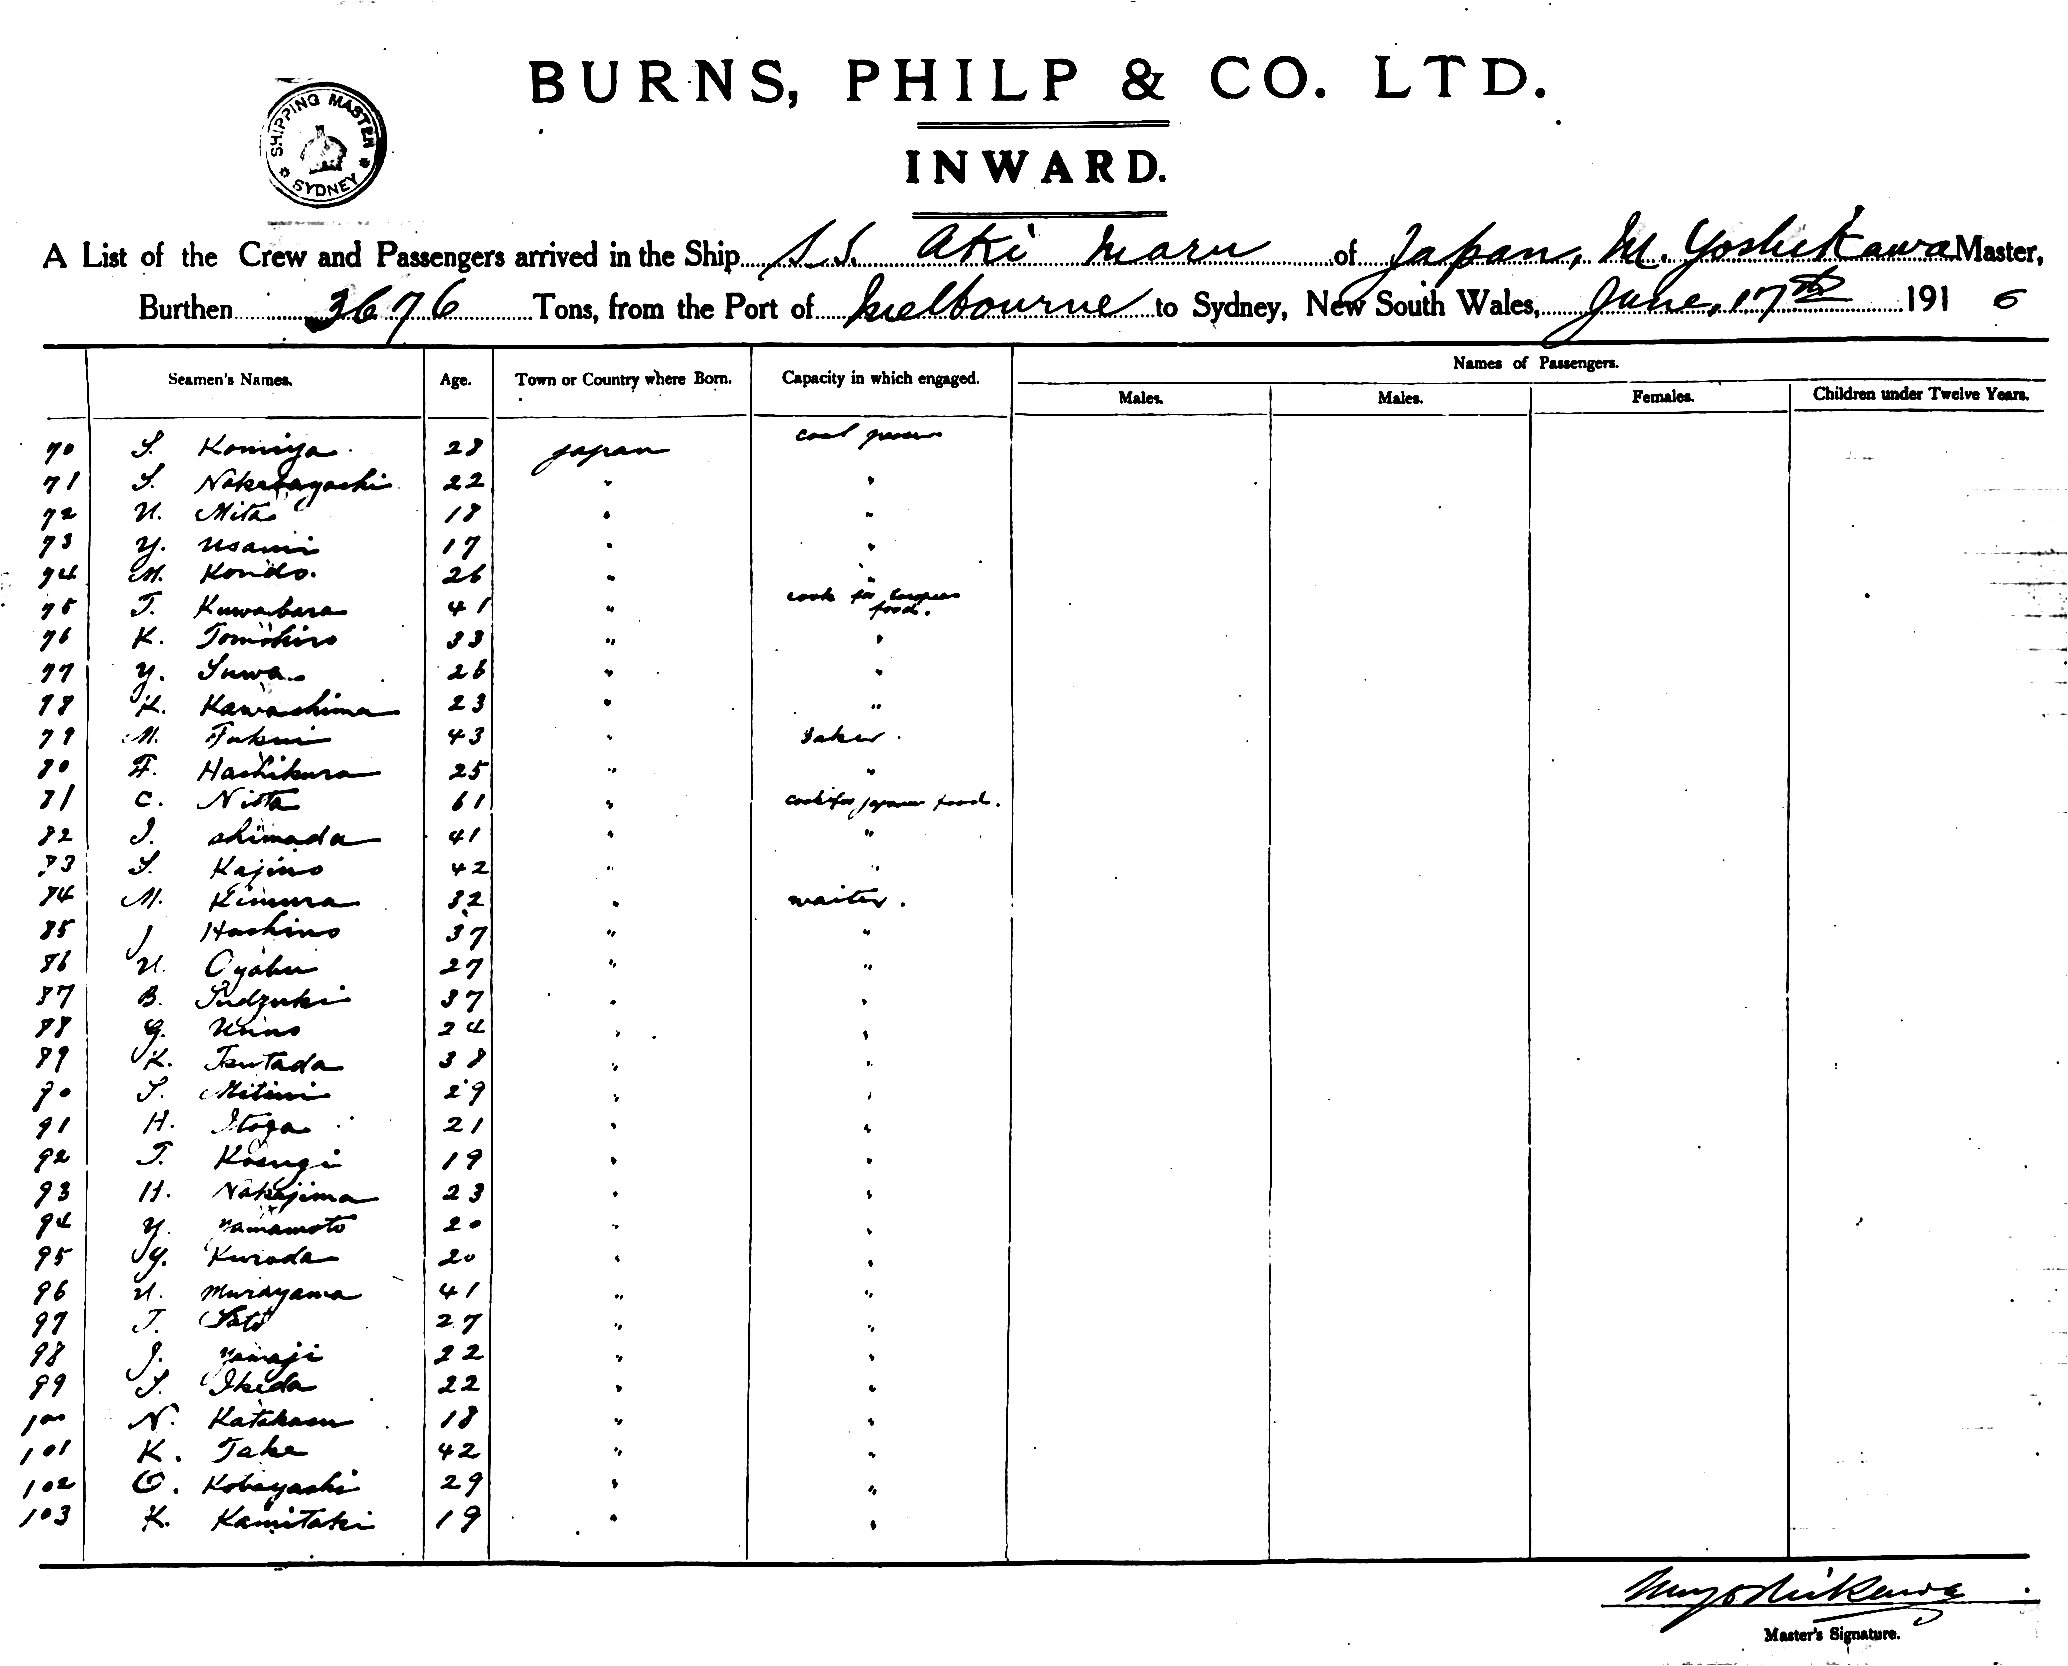 BURNS, PHILP & CO. LTD.
SHIPPING MASTER
SYDNEY
INWARD.
A List of the Crew and Passengers arrived in the Ship S.S. Aki Maru of Japan, M. Yoshikawa Master,
Burthen 3676 Tons, from the Port of Melbourne to Sydney, New South Wales, June, 17th 1916
Names of Passengers.
Seamen's Names. Age. Town or Country where Born. Capacity in which engaged. Males. Males. Females. Children under Twelve Years.
70 S. Komiya 28 Japan coal passer
71 S. Nakabayashi 22 " "
72 U. Mita 18 " "
73 Y. Usami 17 " "
74 M. Kondo. 26 " "
75 T. Kuwabara 41 " cook for food.
76 K. Tomohiro 33 " "
77 Y. Suwa 26 " "
78 K. Kawashima 23 " "
79 M. Fukui 43 " baker.
80 F. Hashikura 25 " "
81 C. Nitta 61 " cook for japanese food.
82 I. Shimada 41 " "
83 S. Kajino 42 " "
84 M. Kimura 32 " waiter.
85 J Hoshino 37 " "
86 U. Oyabu 27 " "
87 B. Sudzuki 37 " "
88 G. Unno 24 " "
89 K. Tsutada 38 " "
90 S. 29 " "
91 H. Itoga 21 " "
92 T. Kosugi 19 " "
93 H. Nakajima 23 " "
94 Y. Yamamoto 20 " "
95 Y. Kuroda 20 " "
96 U. Murayama 41 " "
97 T. Sato 27 " "
98 J. Yamaji 22 " "
99 S. Ikeda 22 " "
100 N. 18 " "
101 K. Take 42 " "
102 O. Kobayashi 29 " "
103 K. Kamitaki 19 " "
M Yoshikawa
Master's Signature.